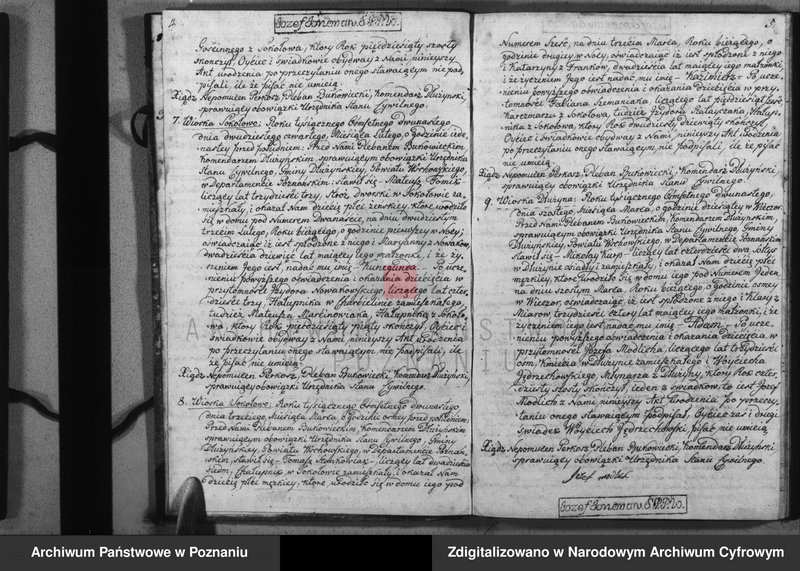 4
Gościnnego z Sokołowa, który Rok pięćdziesiąty szosty
skonczył, Oyciec i świadkowie obydway z Nami ninieyszy
Akt urodzenia po przeczytaniu onego stawaiącym nie pod-
pisali, że pisać nie umieią
Xiądz Nepomucen Perkosz, Pleban Bukowiecki, Komendarz Dłużyński,
sprawuiący obowiązki Urzędnika Stanu Cywilnego.
7. Wioska Sokołowo: Roku tysiącznego Osmsetnego dwunastego,
dnia dwudziestego czwartego, Miesiąca Lutego, o godzinie iede-
nastey przed południem: Przed Nami Plebanem Bukowieckim,
Komendarzem Dłużyńskim, sprawuiącym obowiązki Urzędnika
Stanu Cywilnego, Gminy Dłużyńskiey, Powiatu Wschowskiego,
w Departamencie Poznanskim: stawił się Mateusz Tomik
liczący lat trzydzieści trzy, Stróż dworski w Sokołowie za-
mięszkały, i okazał Nam dziecię płci żenskiey, które urodziło
się w domu pod Numerem Dwanaście, na dniu dwudziestym
trzecim Lutego, Roku bieżącego, o godzinie pierwszey w Nocy;
oświadczaiąc iż iest spłodzone z niego i Maryanny z Nowaków,
dwadzieścia dziewięć lat maiącey iego małżonki, i że ży-
czeniem Jego iest, nadać mu imię Kunegunda. Po uczy-
nieniu powyższego oświadczenia i okazania dziecięcia w
przytomności Izydora Nowakowskiego, liczącego lat czter-
dzieści trzy, Hałupnika w zamięszkałego,
tudzież Mateusza Marcinowiaka, Hałupnika z Sokoło-
wa, ktory Rok pięćdziesiąty piąty skonczył, Oyciec i
świadkowie obydway z Nami ninieyszy Akt Urodzenia
po przeczytaniu onego stawaiącym nie podpisali, że
że pisać nie umieią
Xiądz Nepomucen Perkosz, Pleban Bukowiecki, Komendarz Dłużyński,
sprawuiący obowiązki Urzędnika Stanu Cywilnego.
8. Wioska Sokołowo: Roku tysiącznego Osmsetnego dwunastego
dnia trzeciego, Miesiąca Marca, o godzinie osmey przed południem:
Przed Nami Plebanem Bukowieckim, Komendarzem Dłużyńskim
sprawuiącym obowiązki Urzędnika Stanu Cywilnego, Gminy
Dłużyńskiey, Powiatu Wschowskiego, w Departamencie Poznań-
skim, stawił się Tomasz liczący lat dwadzieścia
siedm, Chałupnik w Sokołowie zamięszkały, i okazał Nam
dziecię płci męzkiey, które urodziło się w domu iego pod
5
Numerem Sześć, na dniu trzecim Marca, Roku bieżącego, o
godzinie drugiey w Nocy, oświadczaiąc iż iest spłodzone z niego
i Katarzyny z Franków, dwadzieścia lat maiącey iego małżonki
i że życzeniem Jego iest nadać mu imię Kazimierz. Po uczy-
nieniu powyższego oświadczenia i okazania dziecięcia w przy-
tomności Fabiana Szymaniaka, liczącego lat pięćdziesiąt
karczmarza z Sokołowa, tudzież Hałup-
nika z Sokołowa, który Rok dziewiąty skonczył
Oyciec i świadkowie obydway z Nami ninieyszy Akt Urodzenia
po przeczytaniu onego stawaiącym nie podpisali, że że pisać
nie umieią
Xiądz Nepomucen Perkosz, Pleban Bukowiecki, Komendarz Dłużyński,
sprawuiący obowiązki Urzędnika Stanu Cywilnego
9. Wioska Dłużyna: Roku tysiącznego Osmsetnego dwunastego,
dnia szostego, Miesiąca Marca, o godzinie dziesiątey w Wieczor.
Przed Nami Plebanem Bukowieckim, Komendarzem Dłużynskim,
sprawuiącym obowiązki Urzędnika Stanu Cywilnego, Gminy
Dłużynskiey, Powiatu Wschowskiego, w Departamencie Poznanskim
stawił się Mikołay Kurp liczący lat czterdzieści dwa, Sołtys
w Dłużynie osiadły i zamięszkały, i okazał Nam dziecię płci
męzkiey, które urodziło się w domu iego pod Numerem Jeden,
na dniu szostym Marca, Roku bieżącego, o godzinie osmey
w Wieczor, oświadczaiąc iż iest spłodzone z niego i Klary z
trzydzieści cztery lat maiącey iego małżonki, i że
życzeniem iego iest, nadać mu imię Adam. Po uczy-
nieniu powyższego oświadczenia i okazania dziecięcia w
przytomności Józefa Modlicha, liczącego lat trzydzieści
osm, Kmiecia w Dłużynie zamięszkałego i Woyciecha
Jędrzechowskiego, Młynarza z Dłużyny, który Rok czter-
dziesty szosty skonczył, ieden z świadkow, to iest Józef
Modlich z Nami ninieyszy Akt Urodzenia po przeczy-
taniu onego stawaiącym podpisał, Oyciec zaś i drugi
świadek Woyciech Jędrzechowski pisać nie umieią
Xiądz Nepomucen Perkosz, Pleban Bukowiecki, Komendarz Dłużyński
sprawuiący obowiązki Urzędnika Stanu Cywilnego
Jozef
Archiwum Państwowe w Poznaniu
Zdigitalizowano w Narodowym Archiwum Cyfrowym